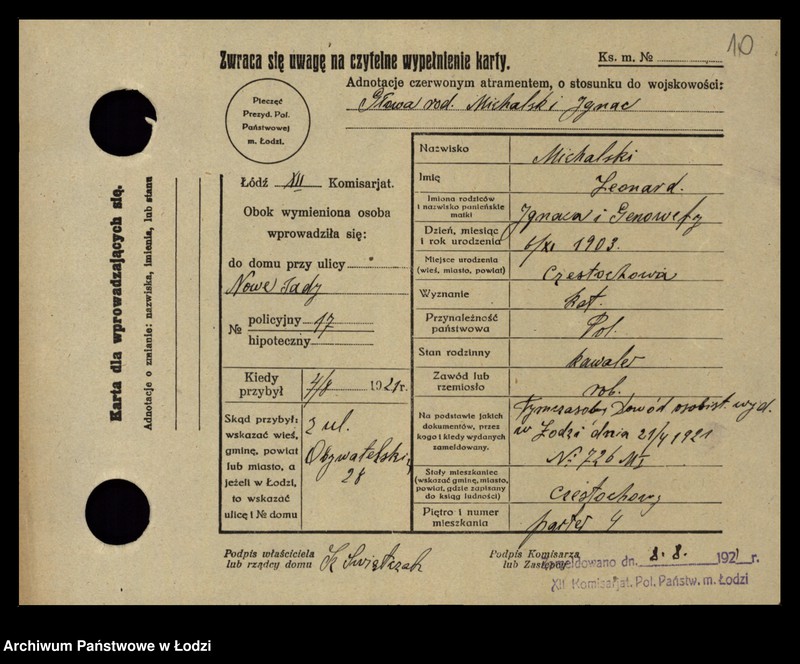 10
Zwraca się uwagę na czytelne wypełnienie karty.
Ks. m. №
Pieczęć
Prezyd. Pol.
Państwowej
m. Łodzi.
Adnotacje czerwonym atramentem, o stosunku do wojskowości:
Głowa rod. Michalski Ignac
Karta dla wprowadzających się.
Adnotacje o zmianie: nazwiska, imienia, lub stanu
Łódź XII Komisarjat.
Obok wymieniona osoba
wprowadziła się:
do domu przy ulicy
Nowe Sady
№ policyjny 17
hipoteczny
Kiedy
przybył 4/8 1921 r.
Skąd przybył:
wskazać wieś,
gminę, powiat
lub miasto, a
jeżeli w Łodzi,
to wskazać
ulicę i № domu
z ul.
Obywatelskiej
28
Nazwisko Michalski
Imię Leonard.
Imiona rodziców
i nazwisko panieńskie
matki
Ignaca i Genowefy
Dzień, miesiąc
i rok urodzenia 6/XI 1903.
Miejsce urodzenia
(wieś, miasto, powiat)
Częstochowa
Wyznanie kat.
Przynależność
państwowa
Pol.
Stan rodzinny kawaler
Zawód lub
rzemiosło
rob.
Na podstawie jakich
dokumentów, przez
kogo i kiedy wydanych
zameldowany.
Tymczasowy Dowód osobist. wyd.
w Łodzi dnia 21/4 1921
№ 726
Stały mieszkaniec
(wskazać gminę, miasto,
powiat, gdzie zapisany
do ksiąg ludności)
Częstochowy
Piętro i numer
mieszkania
parter 4
Podpis właściciela
lub rządcy domu
Podpis Komisarza
lub Zastępcy
Zameldowano dn. 8. 8. 1921 r.
XII. Komisarjat. Pol. Państw. m. Łodzi
Archiwum Państwowe w Łodzi